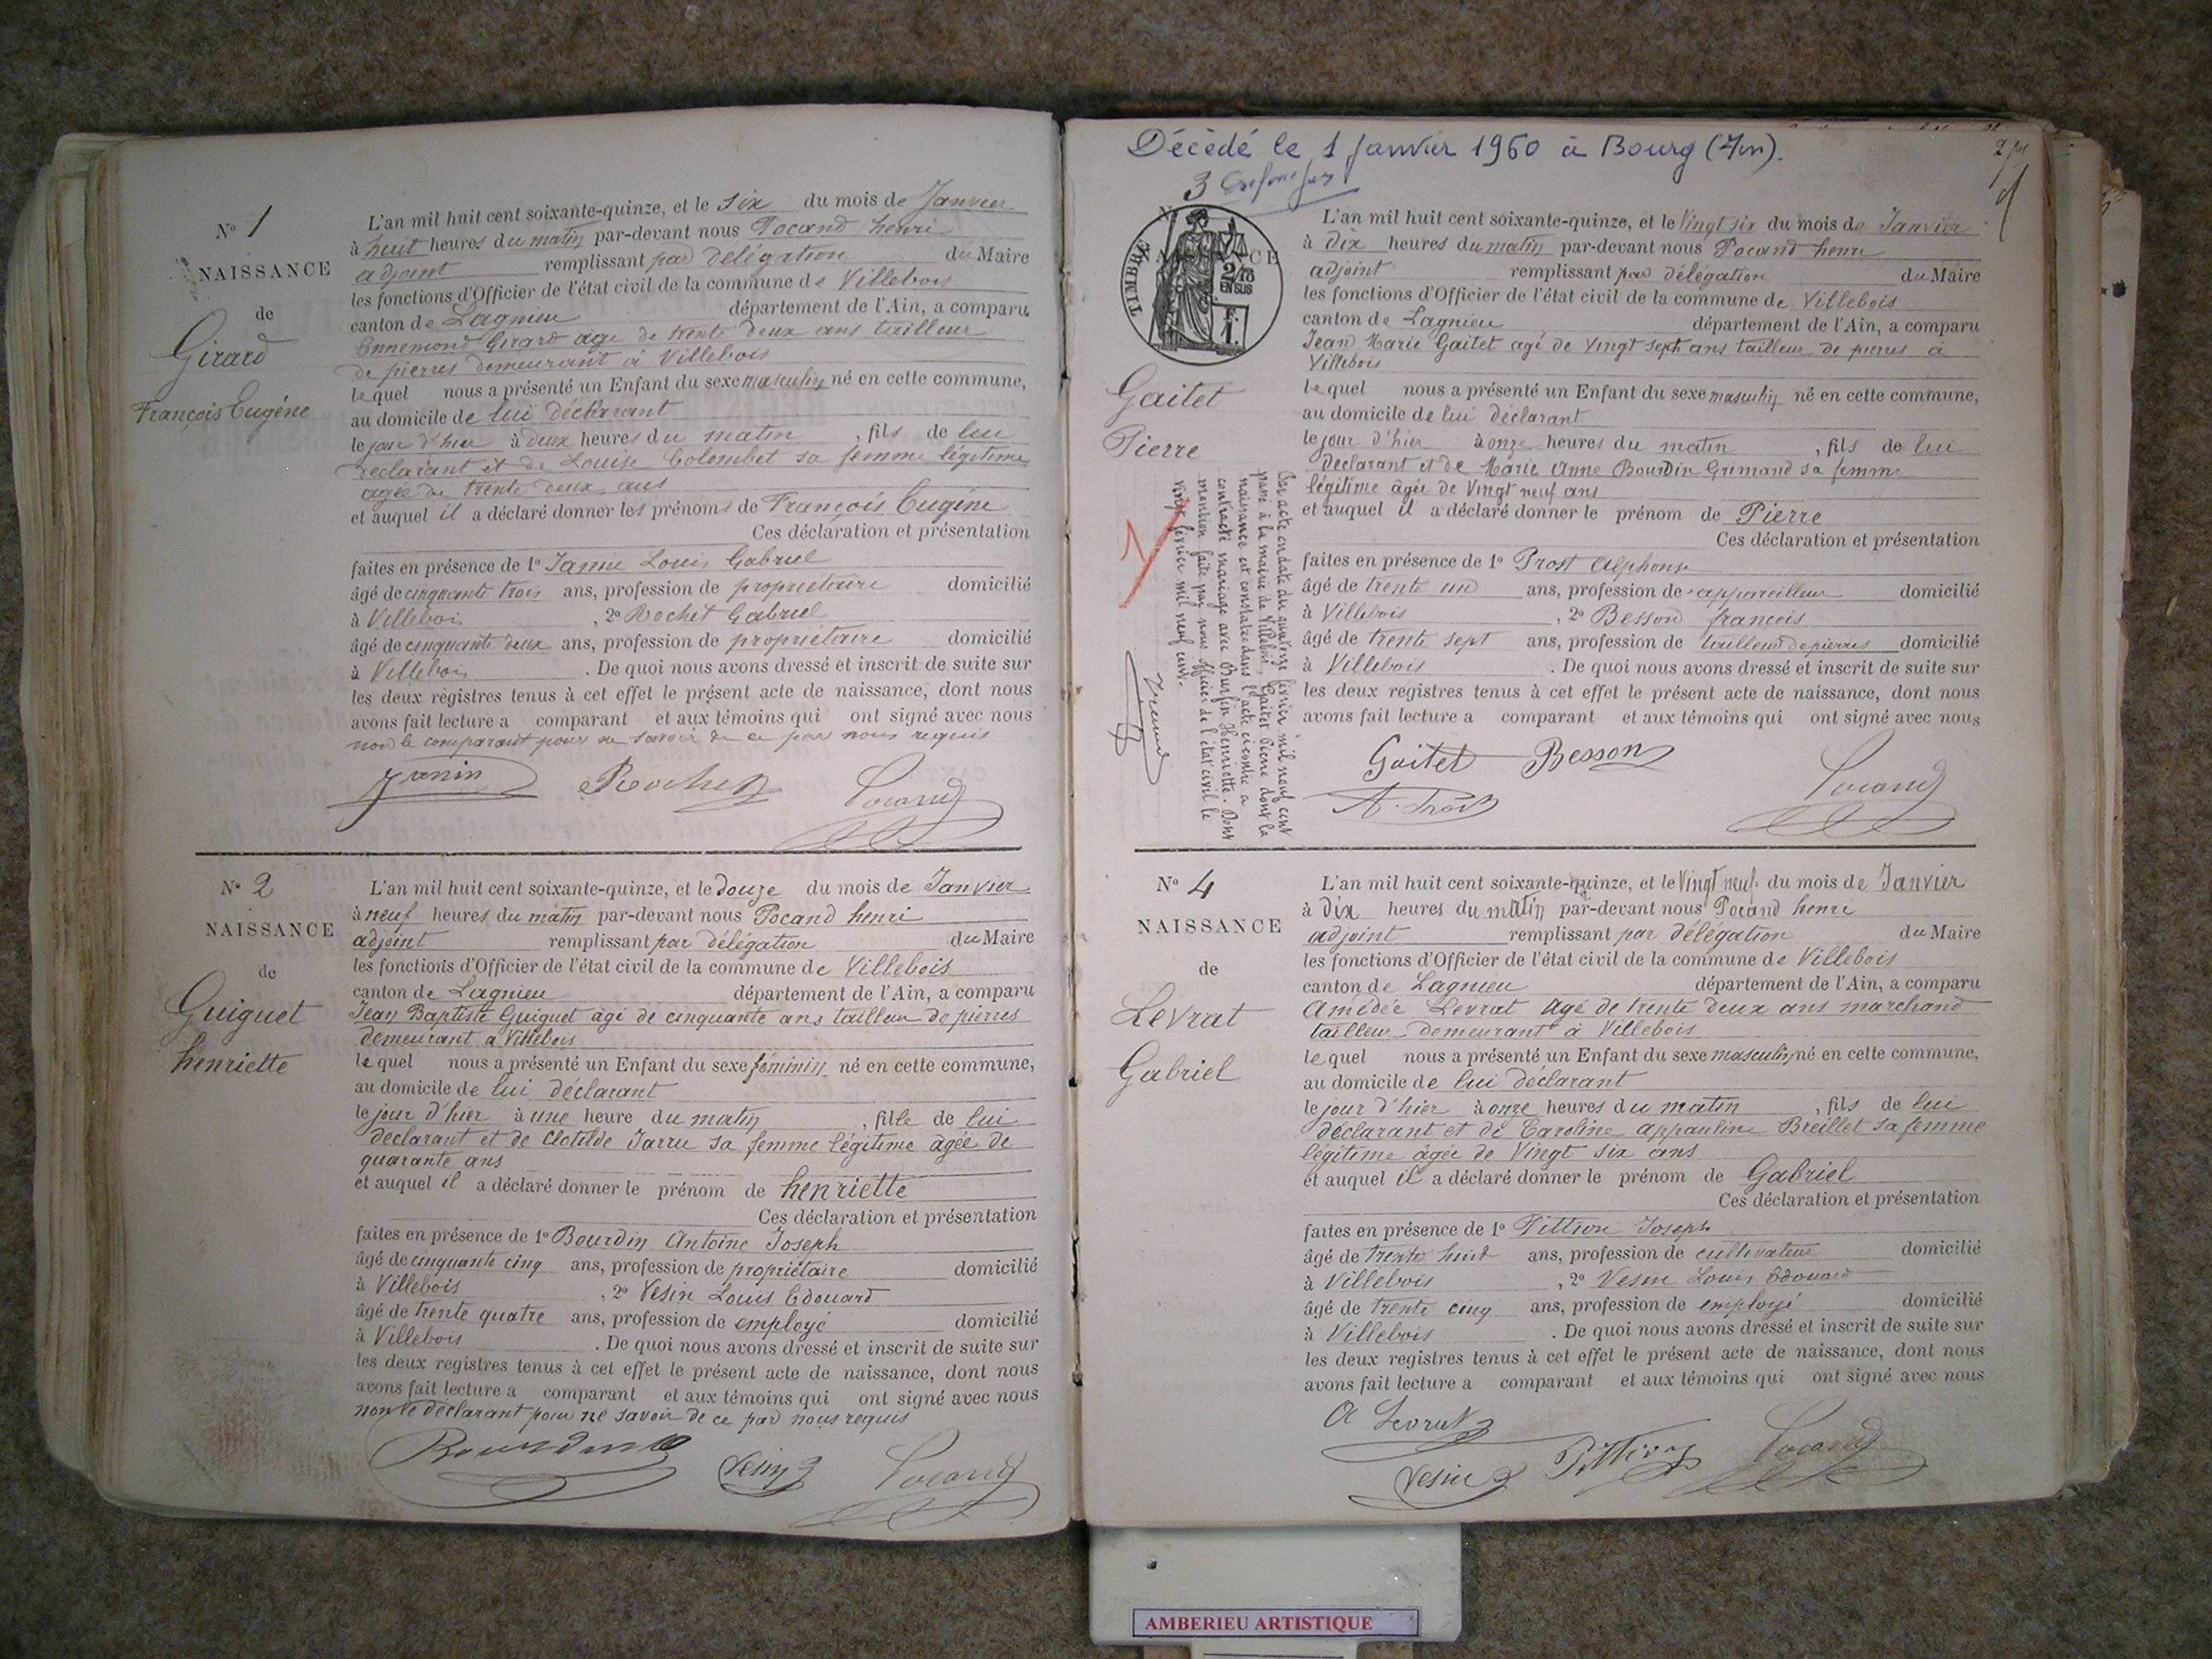 N° 1
NAISSANCE
de
Girard
François Eugéne
L'an mil huit cent soixante-quinze, et le six du mois de Janvier
à huit heures du matin par-devant nous Pocand henri
adjoint remplissant par délégation du Maire
les fonctions d'Officier de l'état civil de la commune de Villebois
canton de Lagnieu département de l'Ain, a comparu
Ennemond Girard age de trente deux ans tailleur
de pierres demeurant à Villebois
lequel nous a présenté un Enfant du sexe masculin né en cette commune,
au domicile de lui déclarant
le jour d'hier à deux heures du matin, fils de lui
déclarant et de Louise Colombet sa femme légitime
agée de trente deux ans
et auquel il a déclaré donner les prénoms de François Eugéne
Ces déclaration et présentation
faites en présence de 1° Janin Louis Gabriel
âgé de cinquante trois ans, profession de propriétaire domicilié
à Villebois, 2° Rochet Gabriel
âgé de cinquante deux ans, profession de propriétaire domicilié
à Villebois. De quoi nous avons dressé et inscrit de suite sur
les deux registres tenus à cet effet le présent acte de naissance, dont nous
avons fait lecture a comparant et aux témoins qui ont signé avec nous
non le comparant pour ne savoir de ce par nous requis
Janin Rochet Pocand
N° 2
NAISSANCE
de
Guiguet
henriette
L'an mil huit cent soixante-quinze, et le douze du mois de Janvier
à neuf heures du matin par-devant nous Pocand henri
adjoint remplissant par délégation du Maire
les fonctions d'Officier de l'état civil de la commune de Villebois
canton de Lagnieu département de l'Ain, a comparu
Jean Baptiste Guiguet agé de cinquante ans tailleur de pierres
demeurant à Villebois
lequel nous a présenté un Enfant du sexe féminin né en cette commune,
au domicile de lui déclarant
le jour d'hier à une heure du matin, fille de lui
déclarant et de Clotilde Jarru sa femme légitime agée de
quarante ans
et auquel il a déclaré donner le prénom de henriette
Ces déclaration et présentation
faites en présence de 1° Bourdin Antoine Joseph
âgé de cinquante cinq ans, profession de propriétaire domicilié
à Villebois, 2° Vesin Louis Edouard
âgé de trente quatre ans, profession de employé domicilié
à Villebois. De quoi nous avons dressé et inscrit de suite sur
les deux registres tenus à cet effet le présent acte de naissance, dont nous
avons fait lecture a comparant et aux témoins qui ont signé avec nous
non le déclarant pour ne savoir de ce par nous requis
Bourdin Vesin Pocand
Décédé le 1 Janvier 1960 à Bourg (Ain).
3
TIMBRE
2/10
EN SUS
NAISSANCE
Gaitet
Pierre
Par acte en date du quatorze février mil neuf cent
passé à la mairie de Villebois, Gaitet Pierre dont la
naissance est constatée dans l'acte ci contre a
contracté mariage avec Burfin Henriette. Dont
mention faite par nous officier de l'état civil le
vingt février mil neuf cent.
L'an mil huit cent soixante-quinze, et le Vingt six du mois de Janvier
à dix heures du matin par-devant nous Pocand henri
adjoint remplissant par délégation du Maire
les fonctions d'Officier de l'état civil de la commune de Villebois
canton de Lagnieu département de l'Ain, a comparu
Jean Marie Gaitet agé de Vingt sept ans tailleur de pierres à
Villebois
lequel nous a présenté un Enfant du sexe masculin né en cette commune,
au domicile de lui déclarant
le jour d'hier à onze heures du matin, fils de lui
déclarant et de Marie Anne Bourdin Grimaud sa femme
légitime agée de Vingt neuf ans
et auquel il a déclaré donner le prénom de Pierre
Ces déclaration et présentation
faites en présence de 1° Prost Alphonse
âgé de trente un ans, profession de appareilleur domicilié
à Villebois, 2° Besson francois
âgé de trente sept ans, profession de tailleur de pierres domicilié
à Villebois. De quoi nous avons dressé et inscrit de suite sur
les deux registres tenus à cet effet le présent acte de naissance, dont nous
avons fait lecture a comparant et aux témoins qui ont signé avec nous
Gaitet Besson
A. Prost Pocand
N° 4
NAISSANCE
de
Levrat
Gabriel
L'an mil huit cent soixante-quinze, et le Vingt neuf du mois de Janvier
à dix heures du matin par-devant nous Pocand henri
adjoint remplissant par délégation du Maire
les fonctions d'Officier de l'état civil de la commune de Villebois
canton de Lagnieu département de l'Ain, a comparu
Amédée Levrat agé de trente deux ans marchand
tailleur demeurant à Villebois
lequel nous a présenté un Enfant du sexe masculin né en cette commune,
au domicile de lui déclarant
le jour d'hier à onze heures du matin, fils de lui
déclarant et de Caroline appauline Breillet sa femme
légitime agée de Vingt six ans
et auquel il a déclaré donner le prénom de Gabriel
Ces déclaration et présentation
faites en présence de 1° Pittion Joseph
âgé de trente huit ans, profession de cultivateur domicilié
à Villebois, 2° Vesin Louis Edouard
âgé de trente cinq ans, profession de employé domicilié
à Villebois. De quoi nous avons dressé et inscrit de suite sur
les deux registres tenus à cet effet le présent acte de naissance, dont nous
avons fait lecture a comparant et aux témoins qui ont signé avec nous
A Levrat
Vesin Pittion Pocand
AMBERIEU ARTISTIQUE